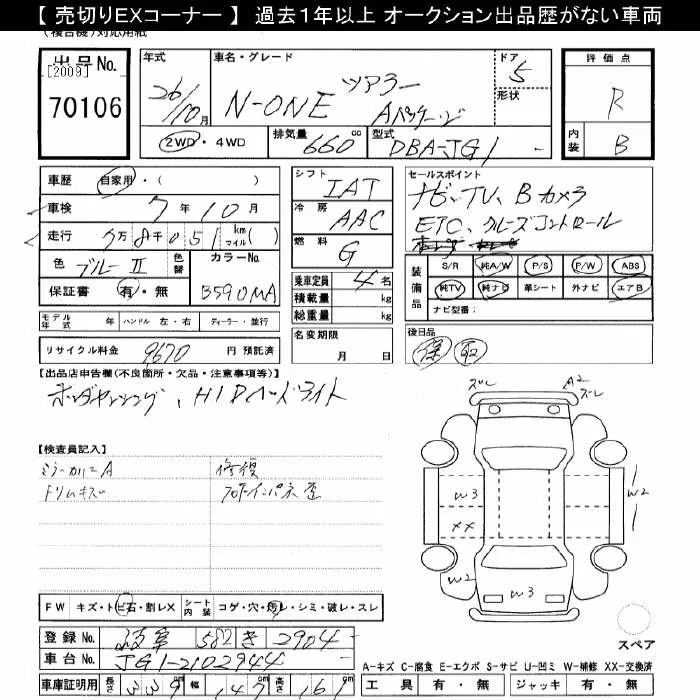 【 売切りEXコーナー 】 過去1年以上 オークション出品歴がない車両
(複合機)対応用紙
出品 No.
[2009]
70106
年式
26/10月
車名・グレード
N-ONE ツアラー
Aパッケージ
ドア
5
形状
評価点
R
内装
B
2WD・4WD
排気量
660 cc
型式
DBA-JG1
車歴 自家用・( )
車検 7年 10月
走行 7万 8千 051 km マイル( )
色 ブルーⅡ
色替
カラーNo.
B590MA
保証書 有・無
モデル年式 年 ハンドル 左・右 ディーラー・並行
リサイクル料金 9670 円 預託済
シフト
IAT
冷房
AAC
燃料
G
乗車定員 4名
積載量 kg
総重量 kg
名変期限
月 日
セールスポイント
ナビ、TV、Bカメラ
ETC、クルーズコントロール
装備品
S/R 純A/W P/S P/W ABS
純TV 純ナビ 革シート 外ナビ エアB
ナビ型番:
後日品
保 取
【出品店申告欄(不良箇所・欠品・注意事項等)】
ホンダセンシング、HIDヘッドライト
【検査員記入】
ミラーカバーA
トリムキズ
修復
フロントインパネ歪
ズレ
A2
ズレ
W3
XX
W2
W2
W3
スペア
FW キズ・トビ石・割レX
シート内装 コゲ・穴・汚レ・シミ・破レ・スレ
登録 No. 岐阜 582 き 2904
車台 No. JG1-2102944
車庫証明用 長さ 339 cm 幅 147 cm 高さ 161 cm
A-キズ C-腐食 E-エクボ S-サビ U-凹ミ W-補修 XX-交換済
工具 有・無 ジャッキ 有・無